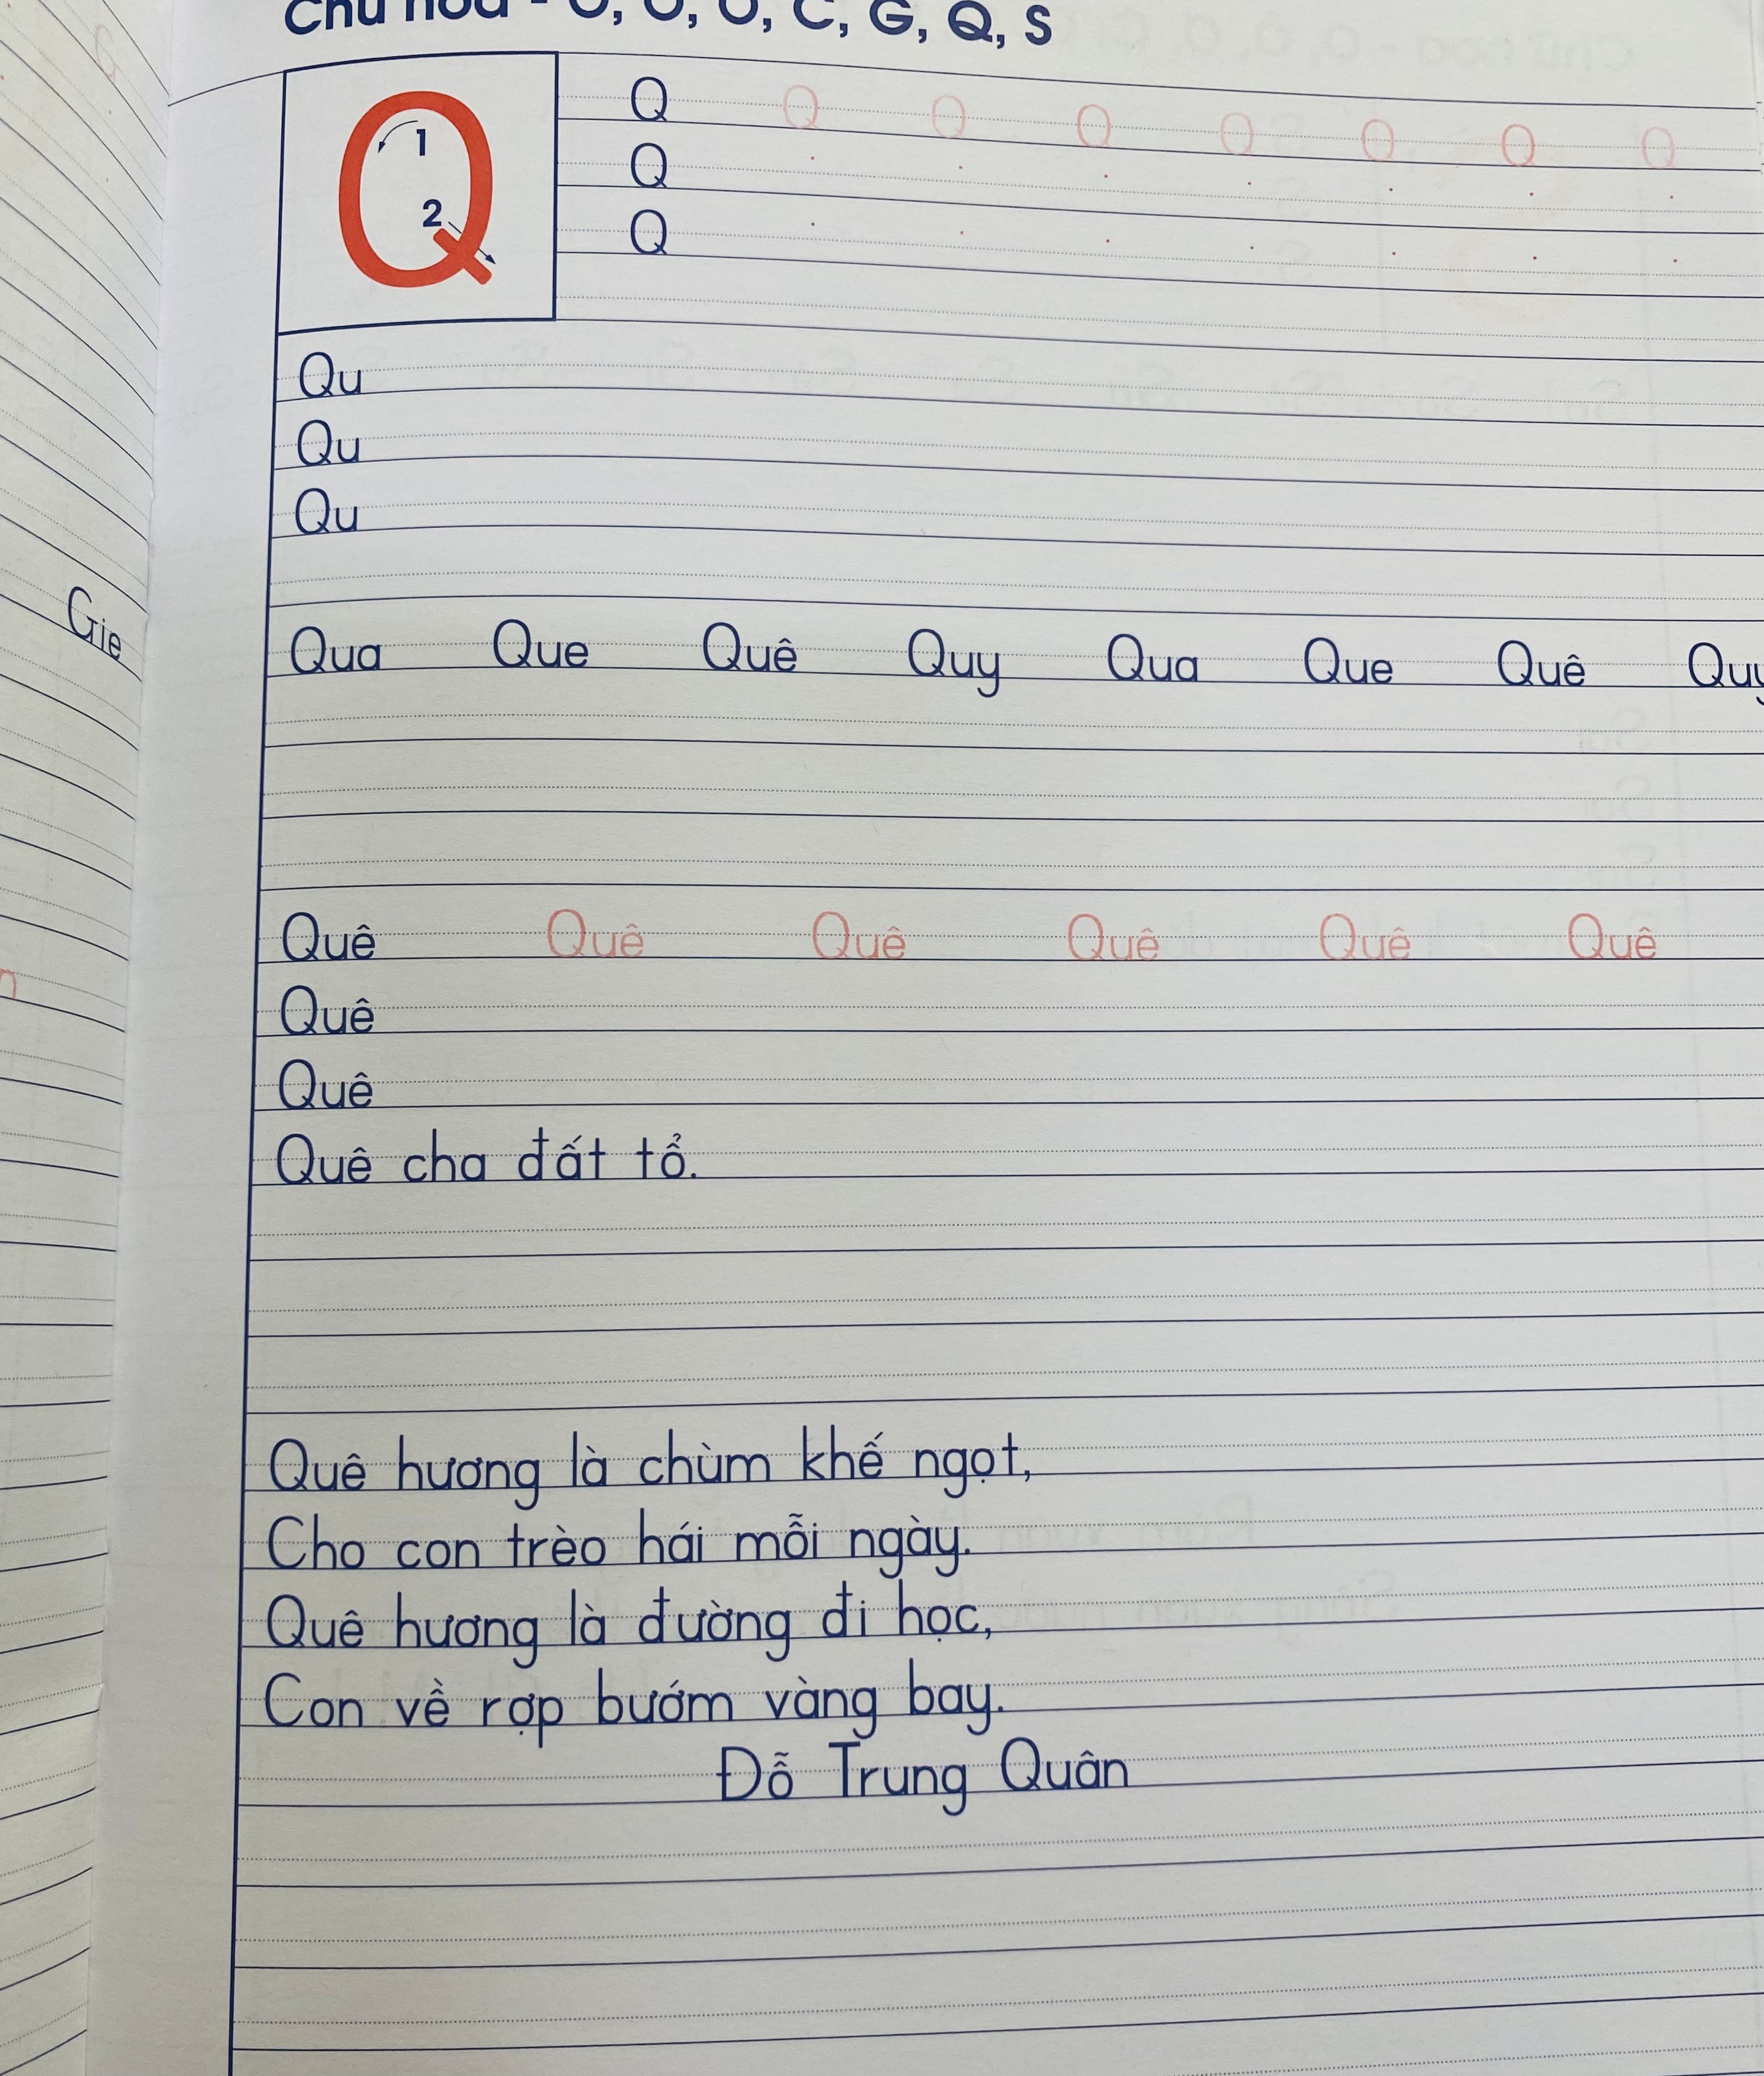 Chữ hoa - O, Ô, Ơ, C, G, Q, S
1
2
Q Q Q Q Q Q Q Q
Q
Q
Qu
Qu
Qu
Gie
Qua Que Quê Quy Qua Que Quê Quy
Quê Quê Quê Quê Quê Quê
Quê
Quê
Quê cha đất tổ.
Quê hương là chùm khế ngọt,
Cho con trèo hái mỗi ngày.
Quê hương là đường đi học,
Con về rợp bướm vàng bay.
Đỗ Trung Quân